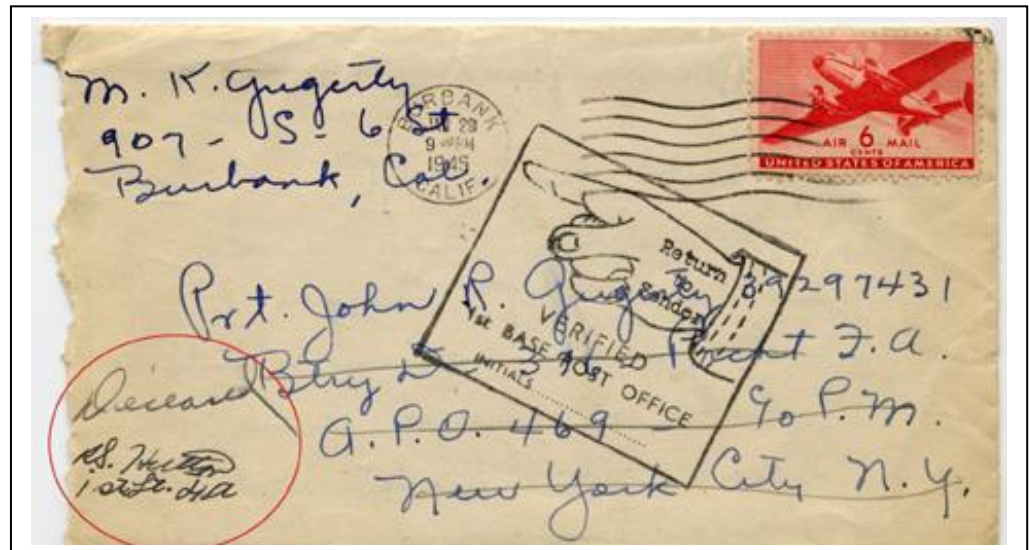 M. K. Gugerty
907 - S - 6 St
Burbank, Cal.
BURBANK
29
1945
CALIF.
AIR 6 MAIL
CENTS
UNITED STATES OF AMERICA
Return
to
Sender
VERIFIED
1st. BASE POST OFFICE
INITIALS
Pvt. John R. Gugerty 39297431
Btry F.A.
A.P.O. 469 - % P.M.
New York City N.Y.
Deceased
1st Lt. FA